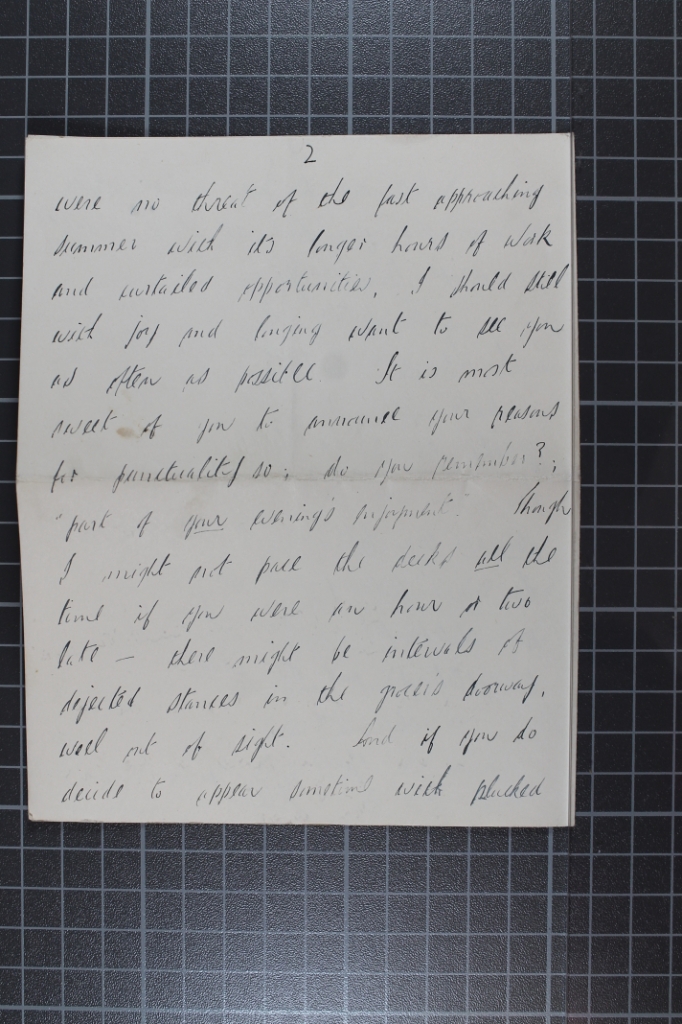 2
were no threat of the fast approaching
summer with its longer hours of work
and curtailed opportunities, I should still
with joy and longing want to see you
as often as possible. It is most
sweet of you to announce your reasons
for punctuality so; do you remember?;
"part of your evening's enjoyment". Though
I might not pace the decks all the
time if you were an hour or two
late — there might be intervals of
dejected stances in the grocer's doorway,
well out of sight. And if you do
decide to appear sometime with plucked